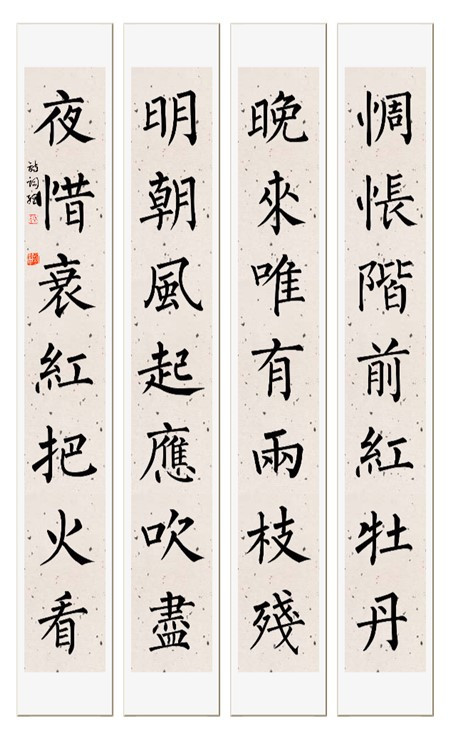 惆悵階前紅牡丹
晚來唯有兩枝殘
明朝風起應吹盡
夜惜衰紅把火看